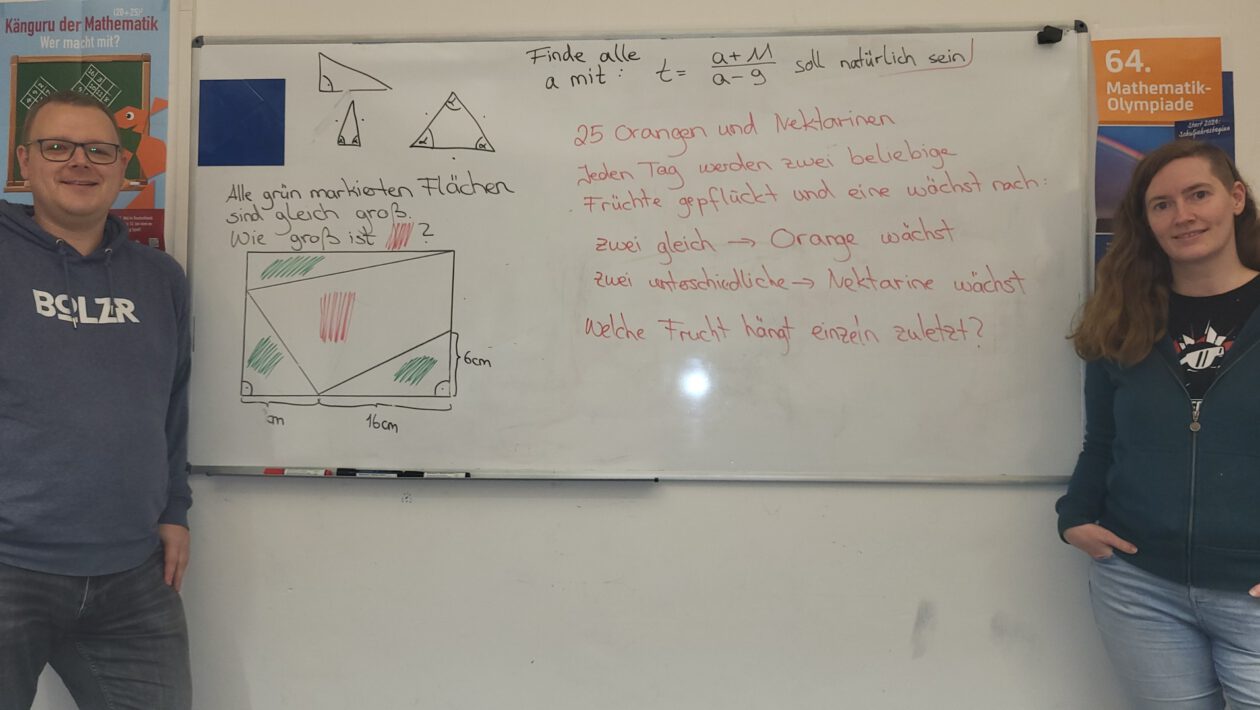 (20+25)²
Känguru der Mathematik
Wer macht mit?
BOLZR
Alle grün markierten Flächen
sind gleich groß.
Wie groß ist ?
6cm
cm
16cm
α α
α α α
Finde alle
a mit: t = a+11 / a-9 soll natürlich sein
25 Orangen und Nektarinen
Jeden Tag werden zwei beliebige
Früchte gepflückt und eine wächst nach:
zwei gleich → Orange wächst
zwei unterschiedliche → Nektarine wächst
Welche Frucht hängt einzeln zuletzt?
64.
Mathematik-
Olympiade
Start 2024:
Schuljahresbeginn